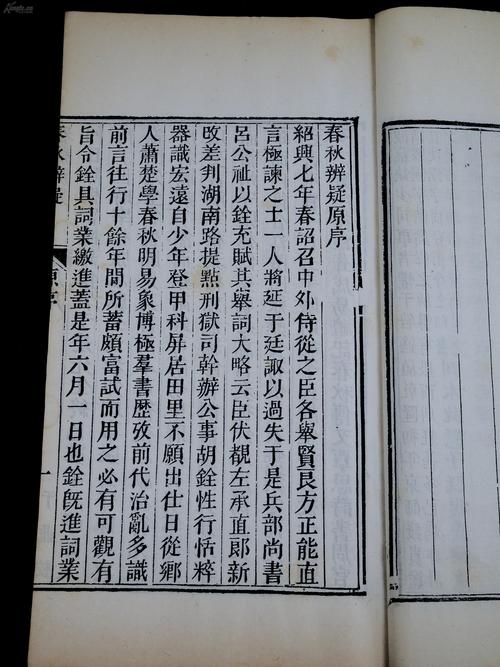 春秋辨疑原序
紹興七年春詔召中外侍從之臣各舉賢良方正能直
言極諫之士一人將延于廷諏以過失于是兵部尚書
呂公祉以銓充賦其舉詞大略云臣伏覩左承直郎新
攺差判湖南路提點刑獄司幹辦公事胡銓性行恬粹
器識宏遠自少年登甲科屏居田里不願出仕日從鄉
人蕭楚學春秋明易象博極羣書歷攷前代治亂多識
前言往行十餘年間所蓄頗富試而用之必有可觀有
旨令銓具詞業繳進蓋是年六月一日也銓旣進詞業
春秋辨疑 原序 一